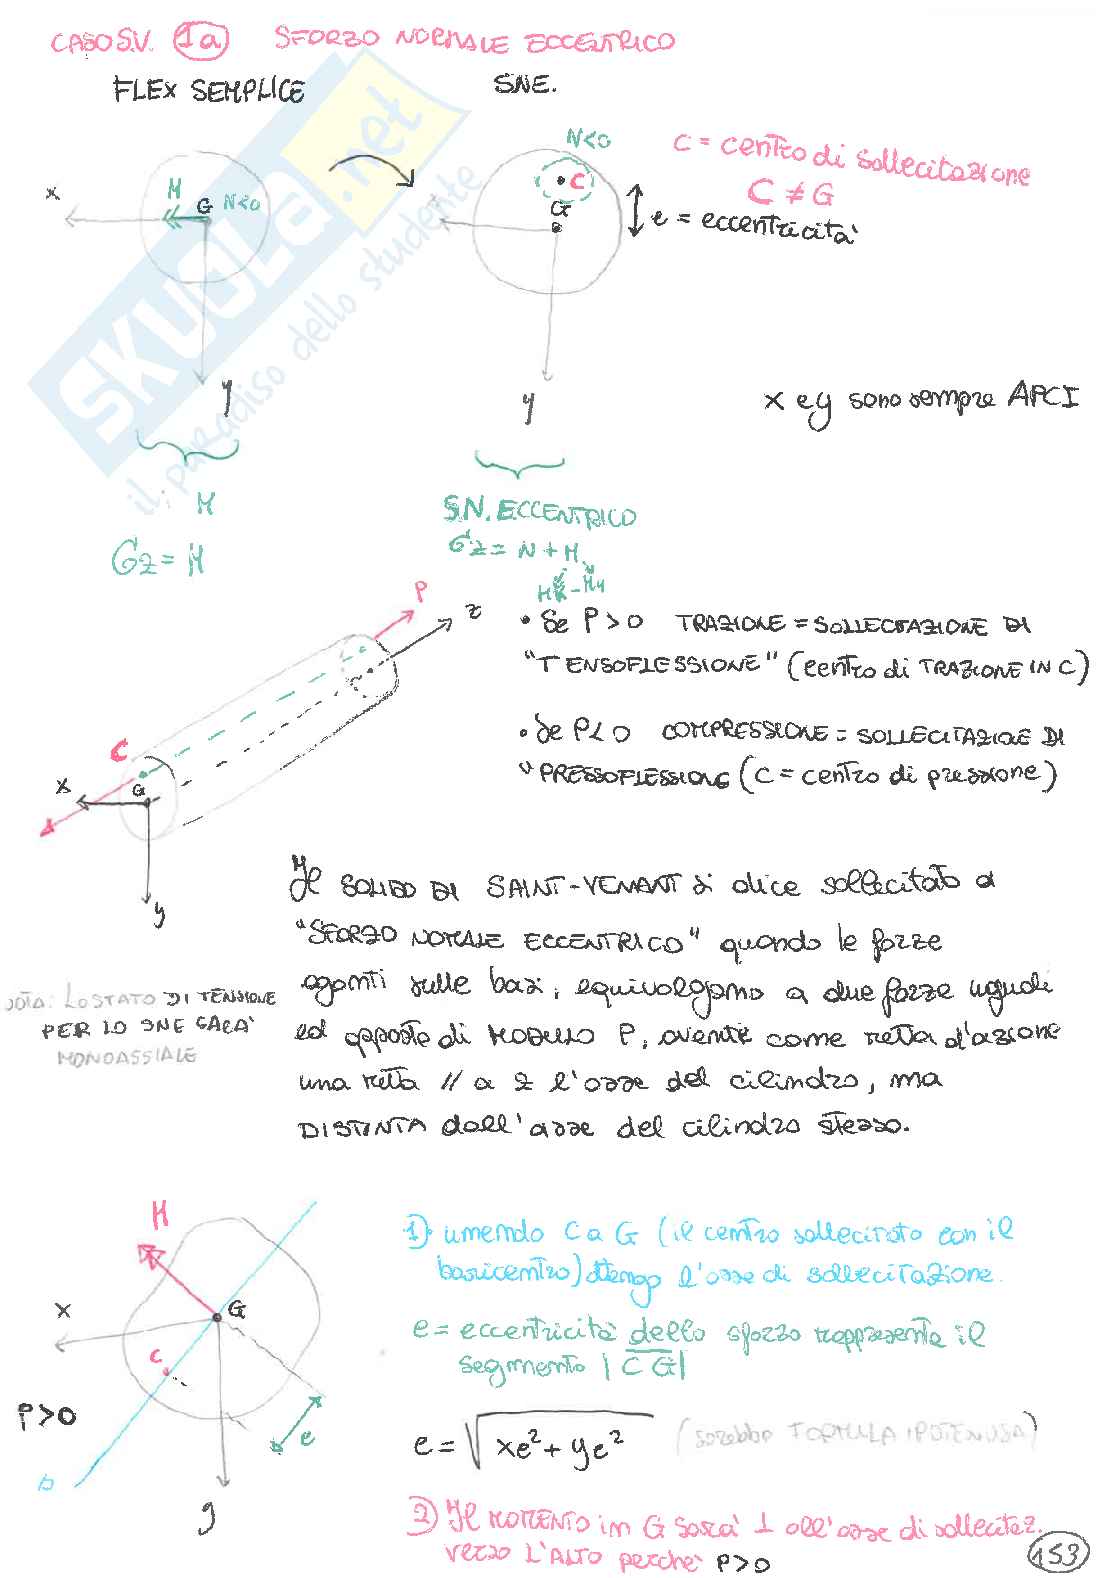 CASO S.V. 1a SFORZO NORMALE ECCENTRICO
FLEX SEMPLICE
SNE.
N<0
C = centro di sollecitazione
C ≠ G
e = eccentricità
x
M
G
N<0
C
G
y
y
x e y sono sempre APCI
M
S.N. ECCENTRICO
σz = M
σz = N + M
Mx - My
P
z
• Se P > 0 TRAZIONE = SOLLECITAZIONE DI
"TENSOFLESSIONE" (centro di TRAZIONE IN C)
• Se P < 0 COMPRESSIONE = SOLLECITAZIONE DI
"PRESSOFLESSIONE (C = centro di pressione)
C
x
G
y
Il SOLIDO DI SAINT-VENANT si dice sollecitato a
"SFORZO NORMALE ECCENTRICO" quando le forze
agenti sulle basi, equivalgono a due forze uguali
ed opposte di MODULO P, avente come retta d'azione
una retta // a z l'asse del cilindro, ma
DISTINTA dall'asse del cilindro stesso.
NOTA: LO STATO DI TENSIONE
PER LO SNE SARA'
MONOASSIALE
M
x
G
C
P>0
e
y
1) unendo C a G (il centro sollecitato con il
baricentro) ottengo l'asse di sollecitazione.
e = eccentricità dello sforzo rappresenta il
segmento |CG|
e = √xe² + ye² (sarebbe FORMULA IPOTENUSA)
2) Il MOMENTO in G sarà ⊥ all'asse di sollecitaz.
verso L'ALTO perché P>0
153
SKUOLA.net
il paradiso dello studente